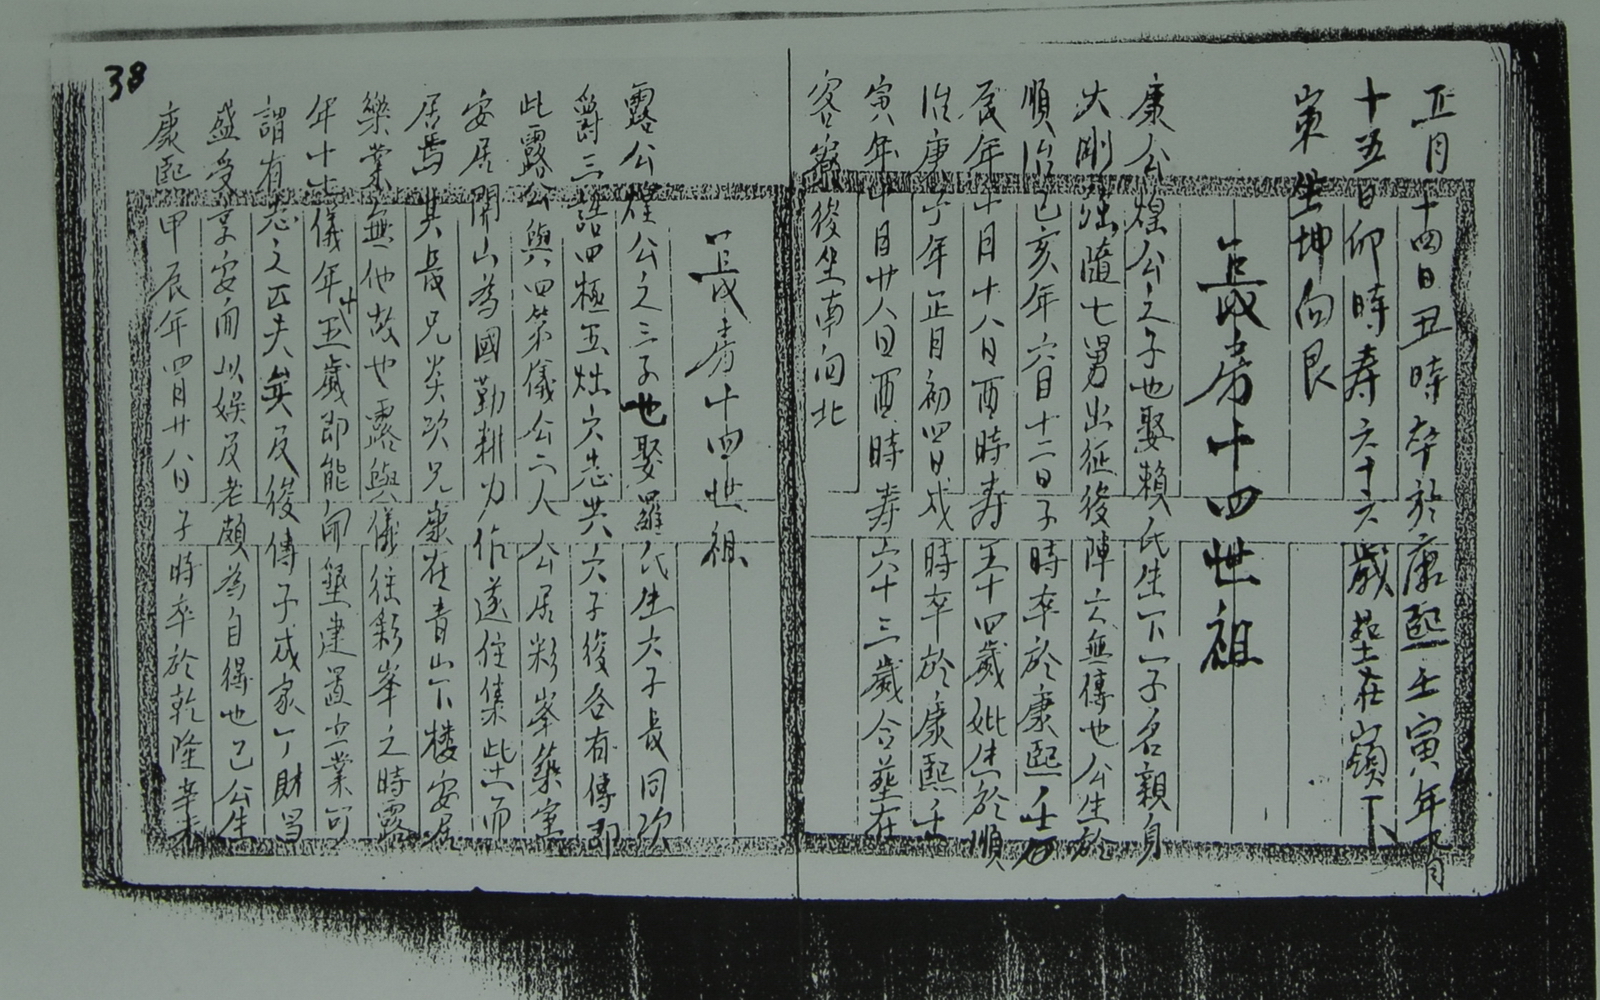 正月十四日丑時卒於康熙壬寅年九月
十五日卯時寿六十六歲塟在嶺下
東坐坤向艮
長房十四世祖
康公煌公之子也娶賴氏生下一子名親身
大剛強隨七舅出征後陣亡無傳也公生於
順治己亥年六月十二日子時卒於康熙壬
辰年十月十八日酉時寿五十四歲妣生於順
治庚子年正月初四日戌時卒於康熙壬
寅年十月廿八日酉時寿六十三歲合塟在
客寮後坐南向北
長房十四世祖
露公煌公之三子也娶羅氏生六子長同次
爵三語四極五灶六志共六子後各有傳即
此露公與四弟儀公二人公居彩峯築室
安居開山為國勤耕力作遂住集此而
居焉其長兄炎次兄康在青山下楼安居
樂業無他故也露與儀往彩峯之時露
年十七儀年十五歲即能開墾建置業可
謂有志之匹夫矣及後傳子成家丁財当
盛受享安而以娛及老頗為自得也己公生
康熙甲辰年四月廿八日子時卒於乾隆辛未
38